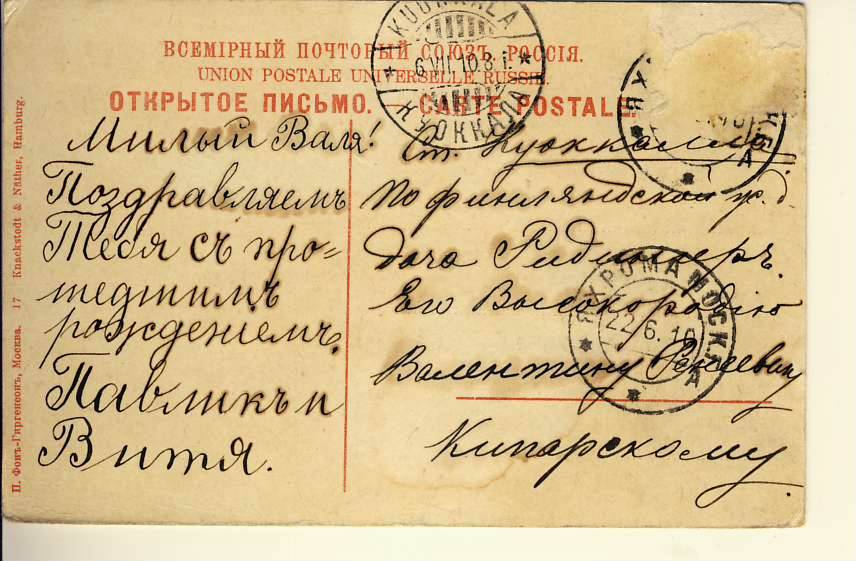 ВСЕМІРНЫЙ ПОЧТОВЫЙ СОЮЗЪ. РОССІЯ.
UNION POSTALE UNIVERSELLE. RUSSIE.
ОТКРЫТОЕ ПИСЬМО. — CARTE POSTALE.
KUOKKALA
6.VII.10.8 i.
КУОККАЛА
Милый Валя!
Поздравляемъ
Тебя съ про=
шедшимъ
рожденіемъ.
Павликъ и
Витя.
Ст. Куоккалла
По финляндской ж. д.
дача Ридингеръ.
Его Высокородію
Валентину
Кипарскому.
ЯХРОМА МОСК.
22.6.10
П. Фонъ-Гиргенсонъ, Москва. 17 Knackstedt & Näther, Hamburg.